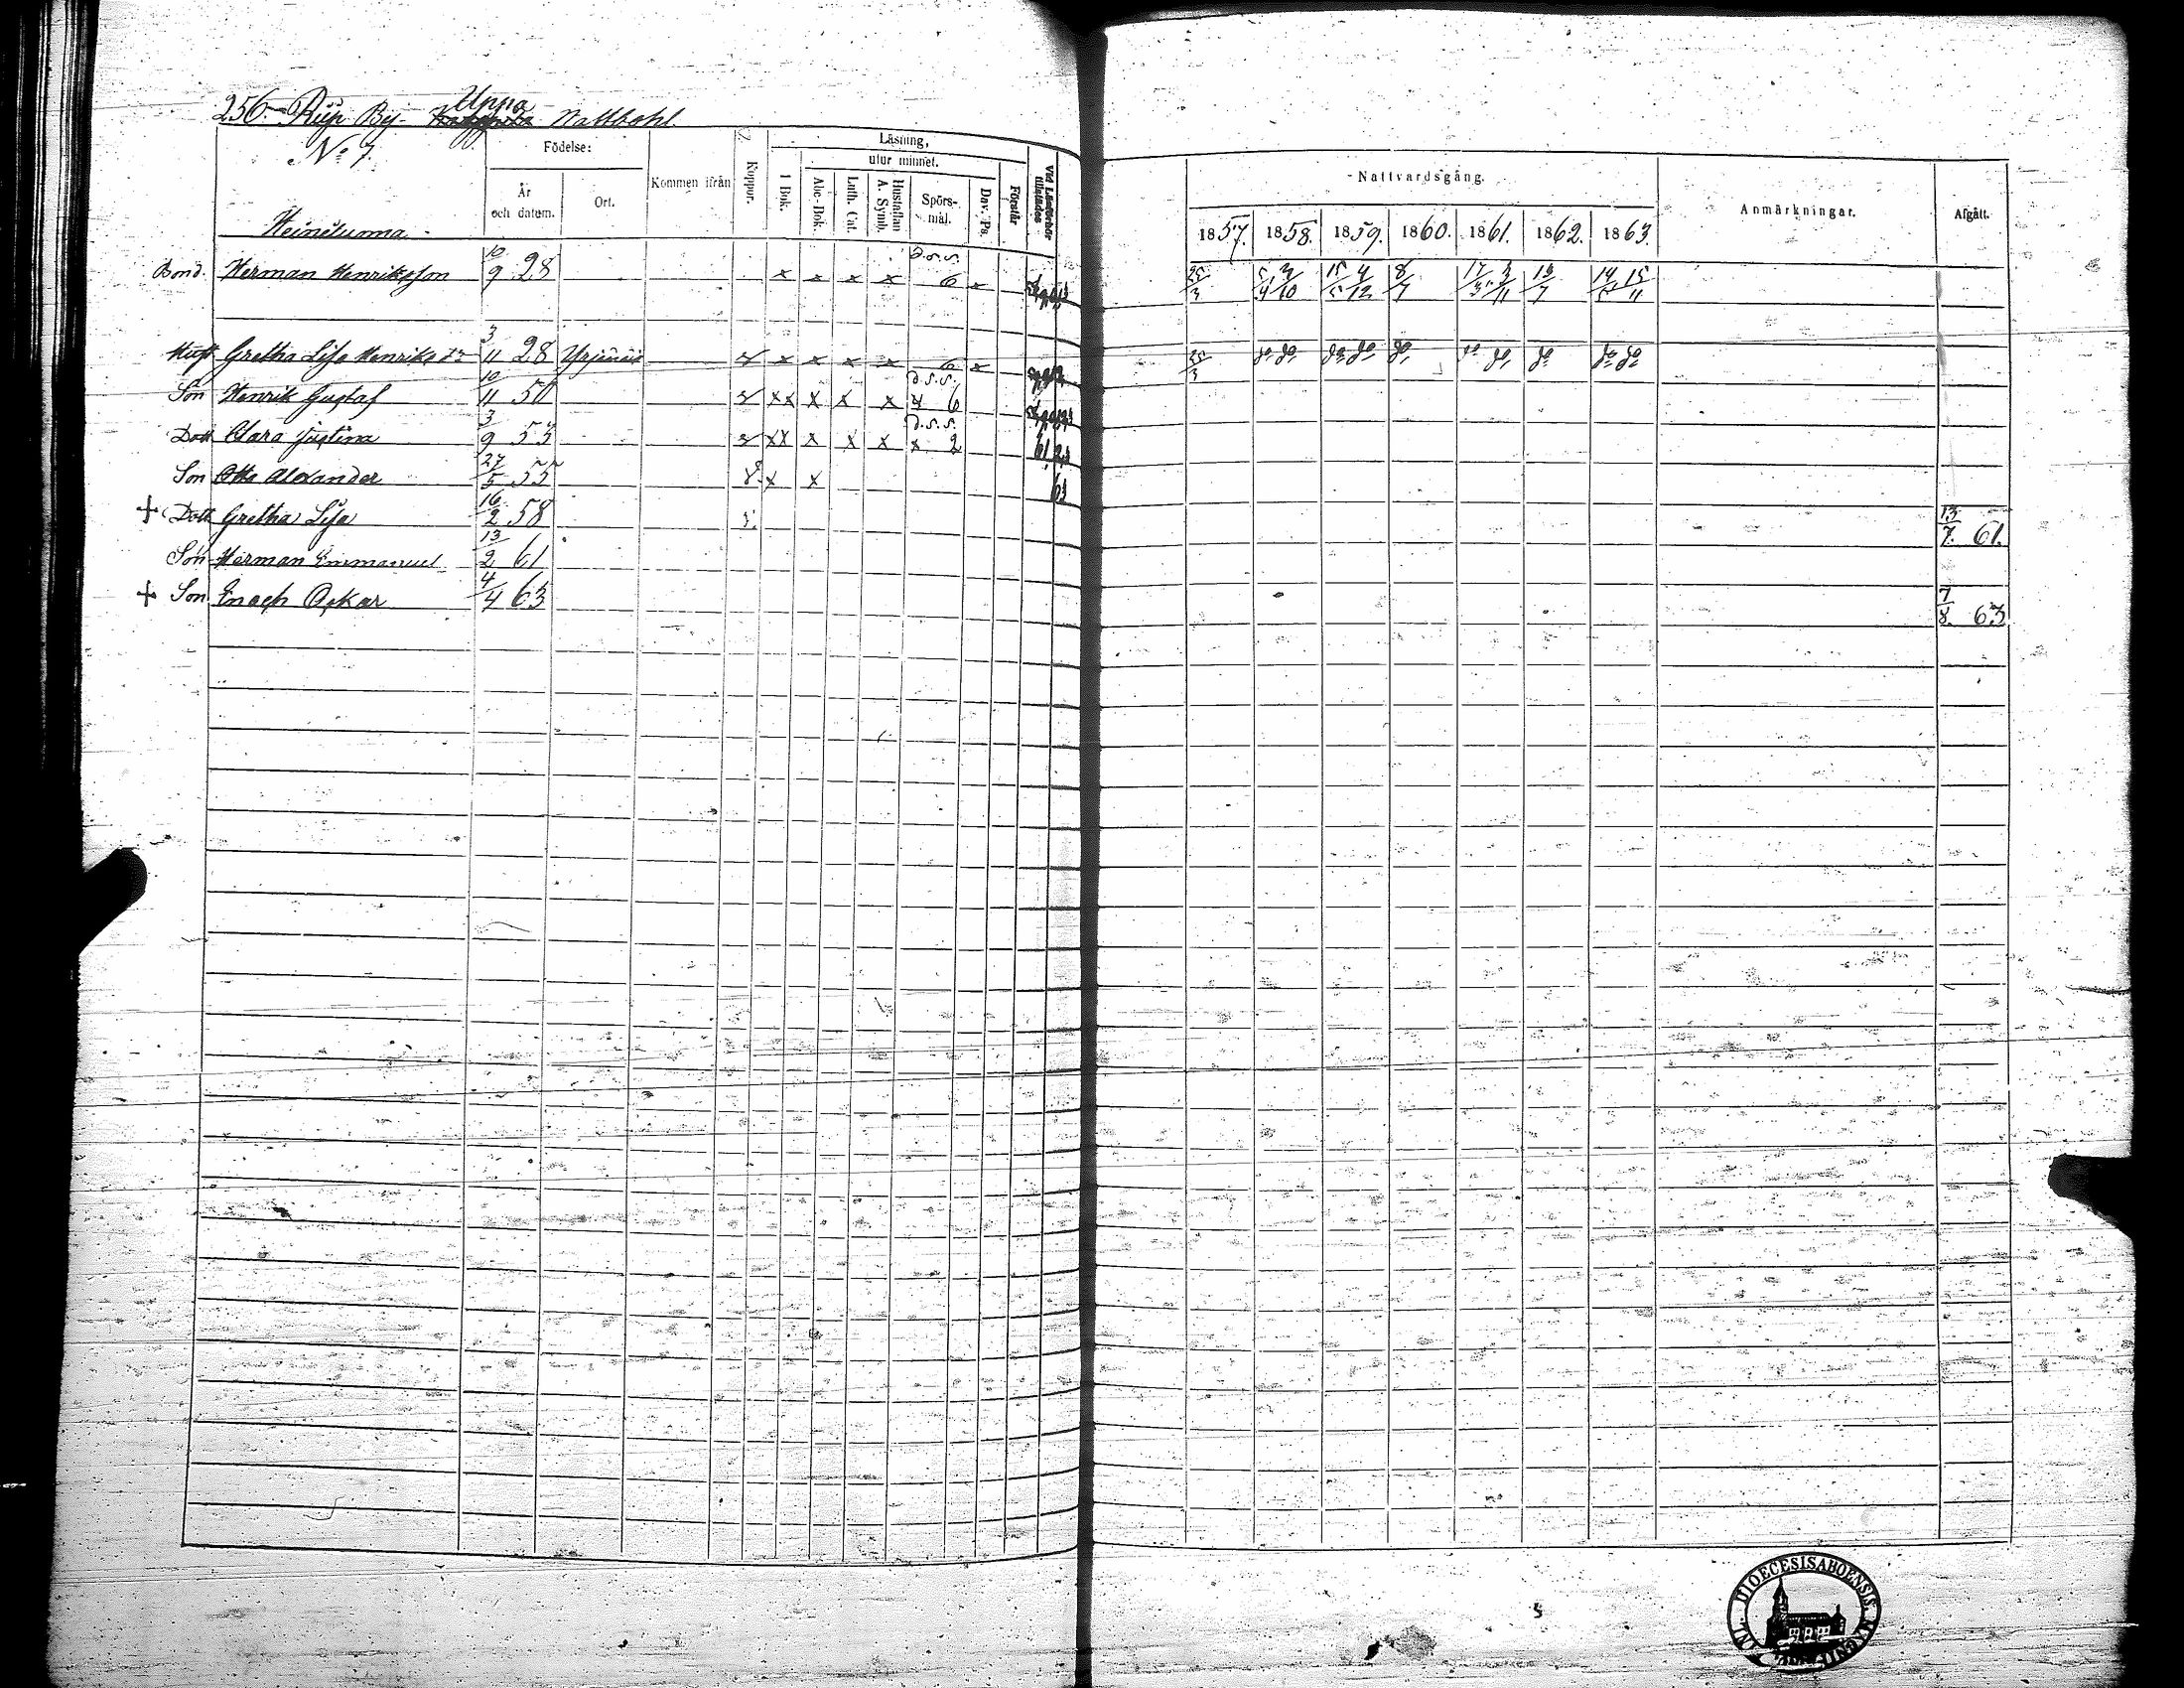 256. By Uppa Nattbohl.
No 7.
Födelse:
Läsning,
utur minnet.
År och datum.
Ort.
Kommen ifrån
Koppor.
I Bok.
Abc-Bok.
Luth. Cat.
Hustaflan A. Symb.
Spörs-mål.
Dav. Ps.
Förstår
Vid Läsförhör tillstädes
Nattvardsgång.
Anmärkningar.
Afgått.
1857. 1858. 1859. 1860. 1861. 1862. 1863.
Bond. Herman Henriksson 10/9 28 x x x x d.s.s. 6 x 25/3 5/4 2/10 15/5 4/12 8/7 17/3 3/11 13/7 15/11
Hust Gretha Lisa Henriks dr 3/11 28 x x x x 6 x 25/3 do do do do do do do do do do
Son Henrik Gustaf 10/11 50 xx x x x d.s.s. 4 6
Dott Clara Justina 3/9 53 xx x x x d.s.s. x 2 61, 2,3
Son Otto Alexander 27/5 55 x x 63
+ Dott Gretha Lisa 16/2 58 13/7. 61.
Son Herman Emmanuel 13/2 61
+ Son Enoch Oskar 4/4 63 7/8. 63.
DIOECESIS ABOENSIS